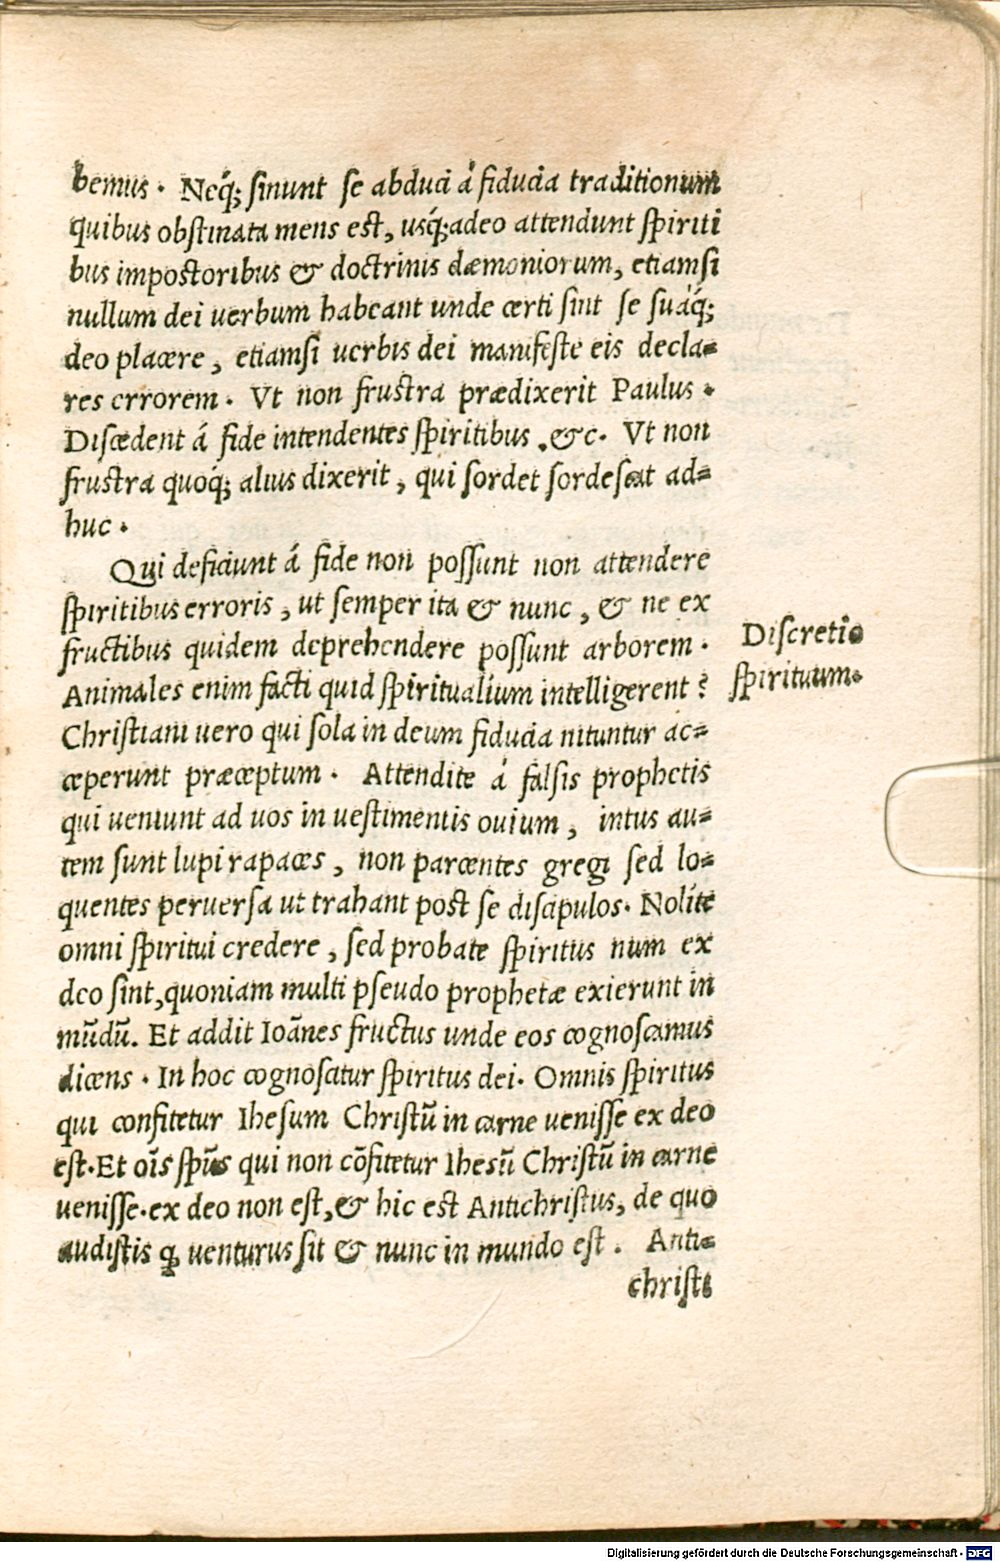 bemus. Neq́; sinunt se abduci á fiducia traditionum
quibus obstinata mens est, usq́;adeo attendunt spiriti
bus impostoribus & doctrinis dæmoniorum, etiamsi
nullum dei uerbum habeant unde certi sint se suáq́;
deo placere, etiamsi uerbis dei manifeste eis decla=
res errorem. Vt non frustra prædixerit Paulus.
Discedent á fide intendentes spiritibus .&c. Vt non
frustra quoq́; alius dixerit, qui sordet sordescat ad=
huc.
Qui deficiunt á fide non possunt non attendere
spiritibus erroris, ut semper ita & nunc, & ne ex
fructibus quidem deprehendere possunt arborem.
Discretio
Animales enim facti quid spiritualium intelligerent?
spirituum.
Christiani uero qui sola in deum fiducia nituntur ac=
ceperunt præceptum. Attendite á falsis prophetis
qui ueniunt ad uos in uestimentis ouium, intus au=
tem sunt lupi rapaces, non parcentes gregi sed lo=
quentes peruersa ut trahant post se discipulos. Nolite
omni spiritui credere, sed probate spiritus num ex
deo sint, quoniam multi pseudo prophetæ exierunt in
mūdū. Et addit Ioānes fructus unde eos cognoscamus
dicens. In hoc cognoscitur spiritus dei. Omnis spiritus
qui confitetur Ihesum Christū in carne uenisse ex deo
est. Et oīs spūs qui non cōfitetur Ihesū Christū in carne
uenisse. ex deo non est, & hic est Antichristus, de quo
audistis ꝙ uenturus sit & nunc in mundo est. Anti=
christi
Digitalisierung gefördert durch die Deutsche Forschungsgemeinschaft - DFG